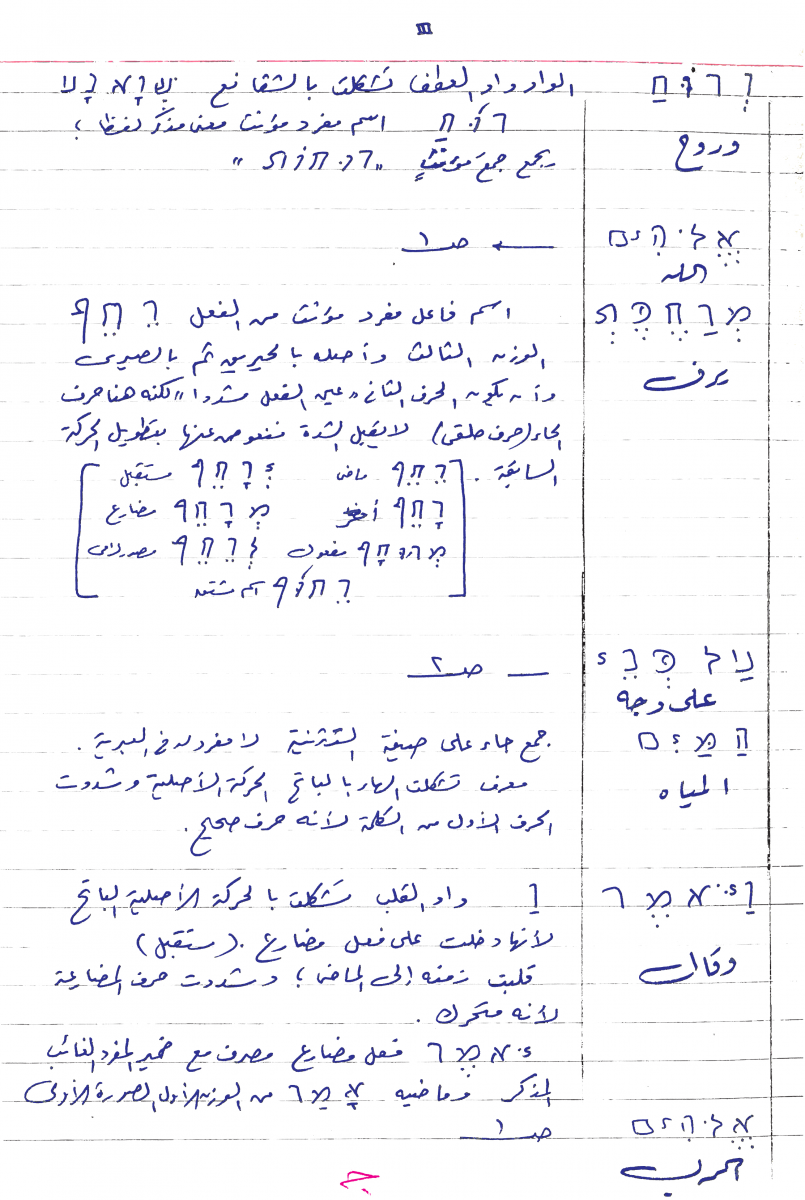 III
וְרוּחַ الواو واو العطف تشكلت بالشفا نع שְׁוָא נָע
רוּחַ اسم مفرد مؤنث معنى مذكر لفظا ؛
وروح
يجمع جمع مؤنث "רוּחוֹת"
אֱלֹהִים ← صـ ١
الله
מְרַחֶפֶת اسم فاعل مفرد مؤنث من الفعل רִחֵף
الوزن الثالث وأصله بالحيريق ثم بالصيرى
يرف
وأن يكون الحرف الثاني "عين الفعل مشددا" لكنه هنا حرف
الحاء (حرف حلقى) لا يقبل الشدة فنعوض عنها بتطويل الحركة
السابقة . [ רִחֵף ماض יְרַחֵף مستقبل
רַחֵף أمر מְרַחֵף مضارع
מְרוּחָף مفعول לְרַחֵף مصدر لامى
רִחוּף اسم مشتق ]
עַל פְּנֵי — صـ ٢
على وجه
הַמַּיִם جمع جاء على صيغة التثنية لا مفرد له فى العبرية .
المياه
معرف تشكلت الهاء بالباتح الحركة الأصلية وشددت
الحرف الأول من الكلمة لأنه حرف صحيح .
וַיֹּאמֶר וַ واو القلب تشكلت بالحركة الأصلية الباتح
لأنها دخلت على فعل مضارع . (مستقبل)
وقال
قلبت زمنه إلى الماضى ؛ وشددت حرف المضارعة
لأنه متحرك .
יֹאמֶר فعل مضارع مصرف مع ضمير المفرد الغائب
المذكر وماضيه אָמַר من الوزن الأول الصورة الأولى
אֱלֹהִים صـ ١
الرب